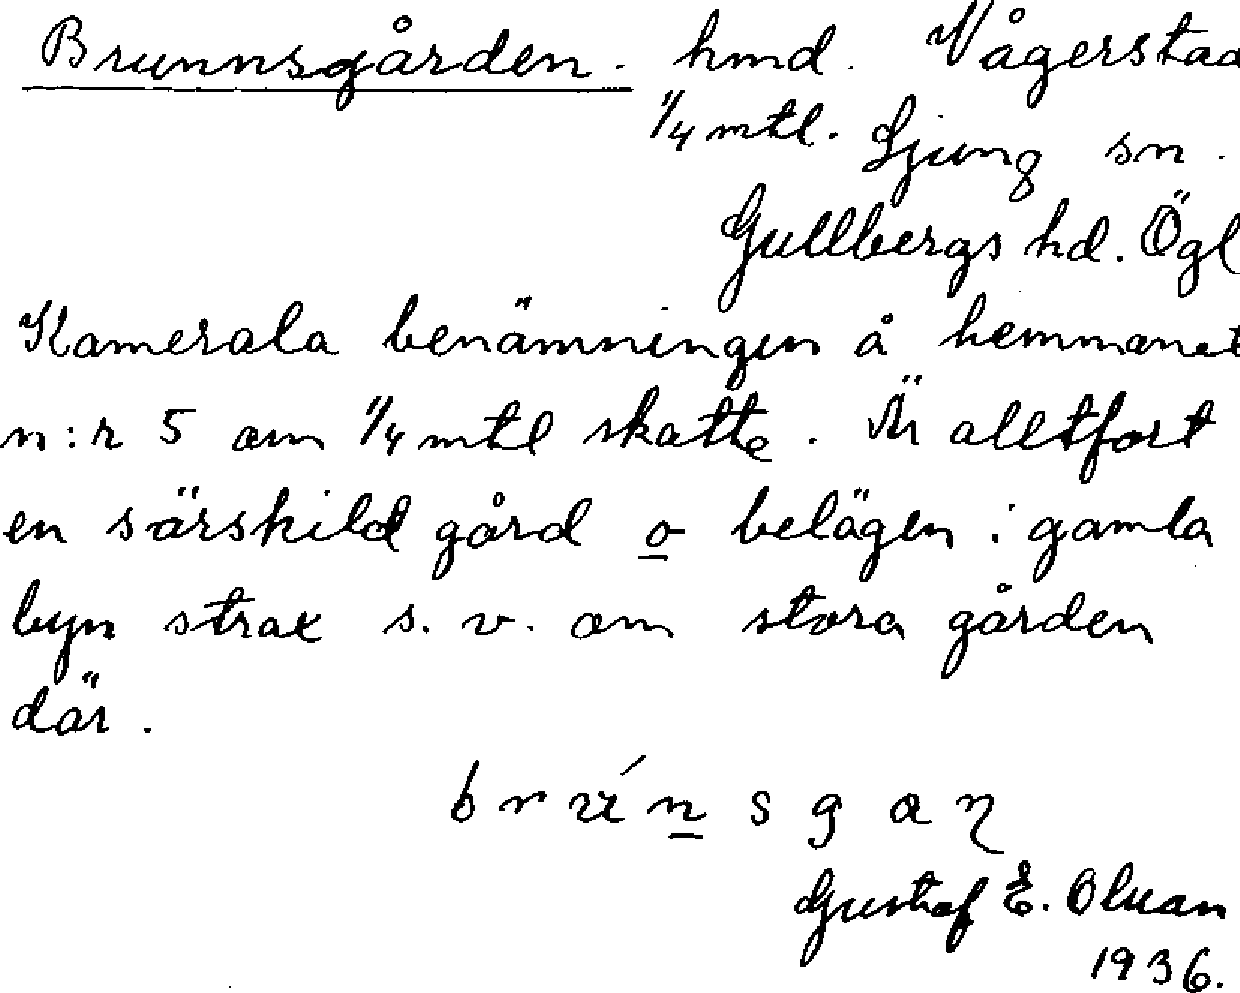 Brunnsgården. hmd. Vågerstad
1/4 mtl. Ljung sn.
Gullbergs hd. Ögl
Kamerala benämningen å hemmanet
n:r 5 om 1/4 mtl skatte. Är alltfort
en särskild gård o belägen i gamla
byn strax s.v. om stora gården
där.
Gustaf E. Olsan
1936.